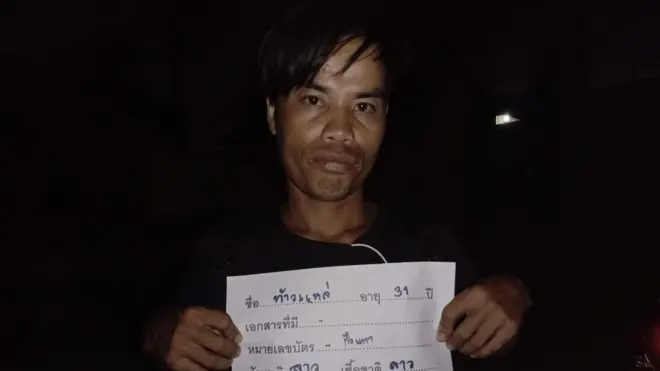 ชื่อ ท้าวแหล่ อายุ 31 ปี
เอกสารที่มี -
หมายเลขบัตร -
ลาว เชื้อชาติ ลาว